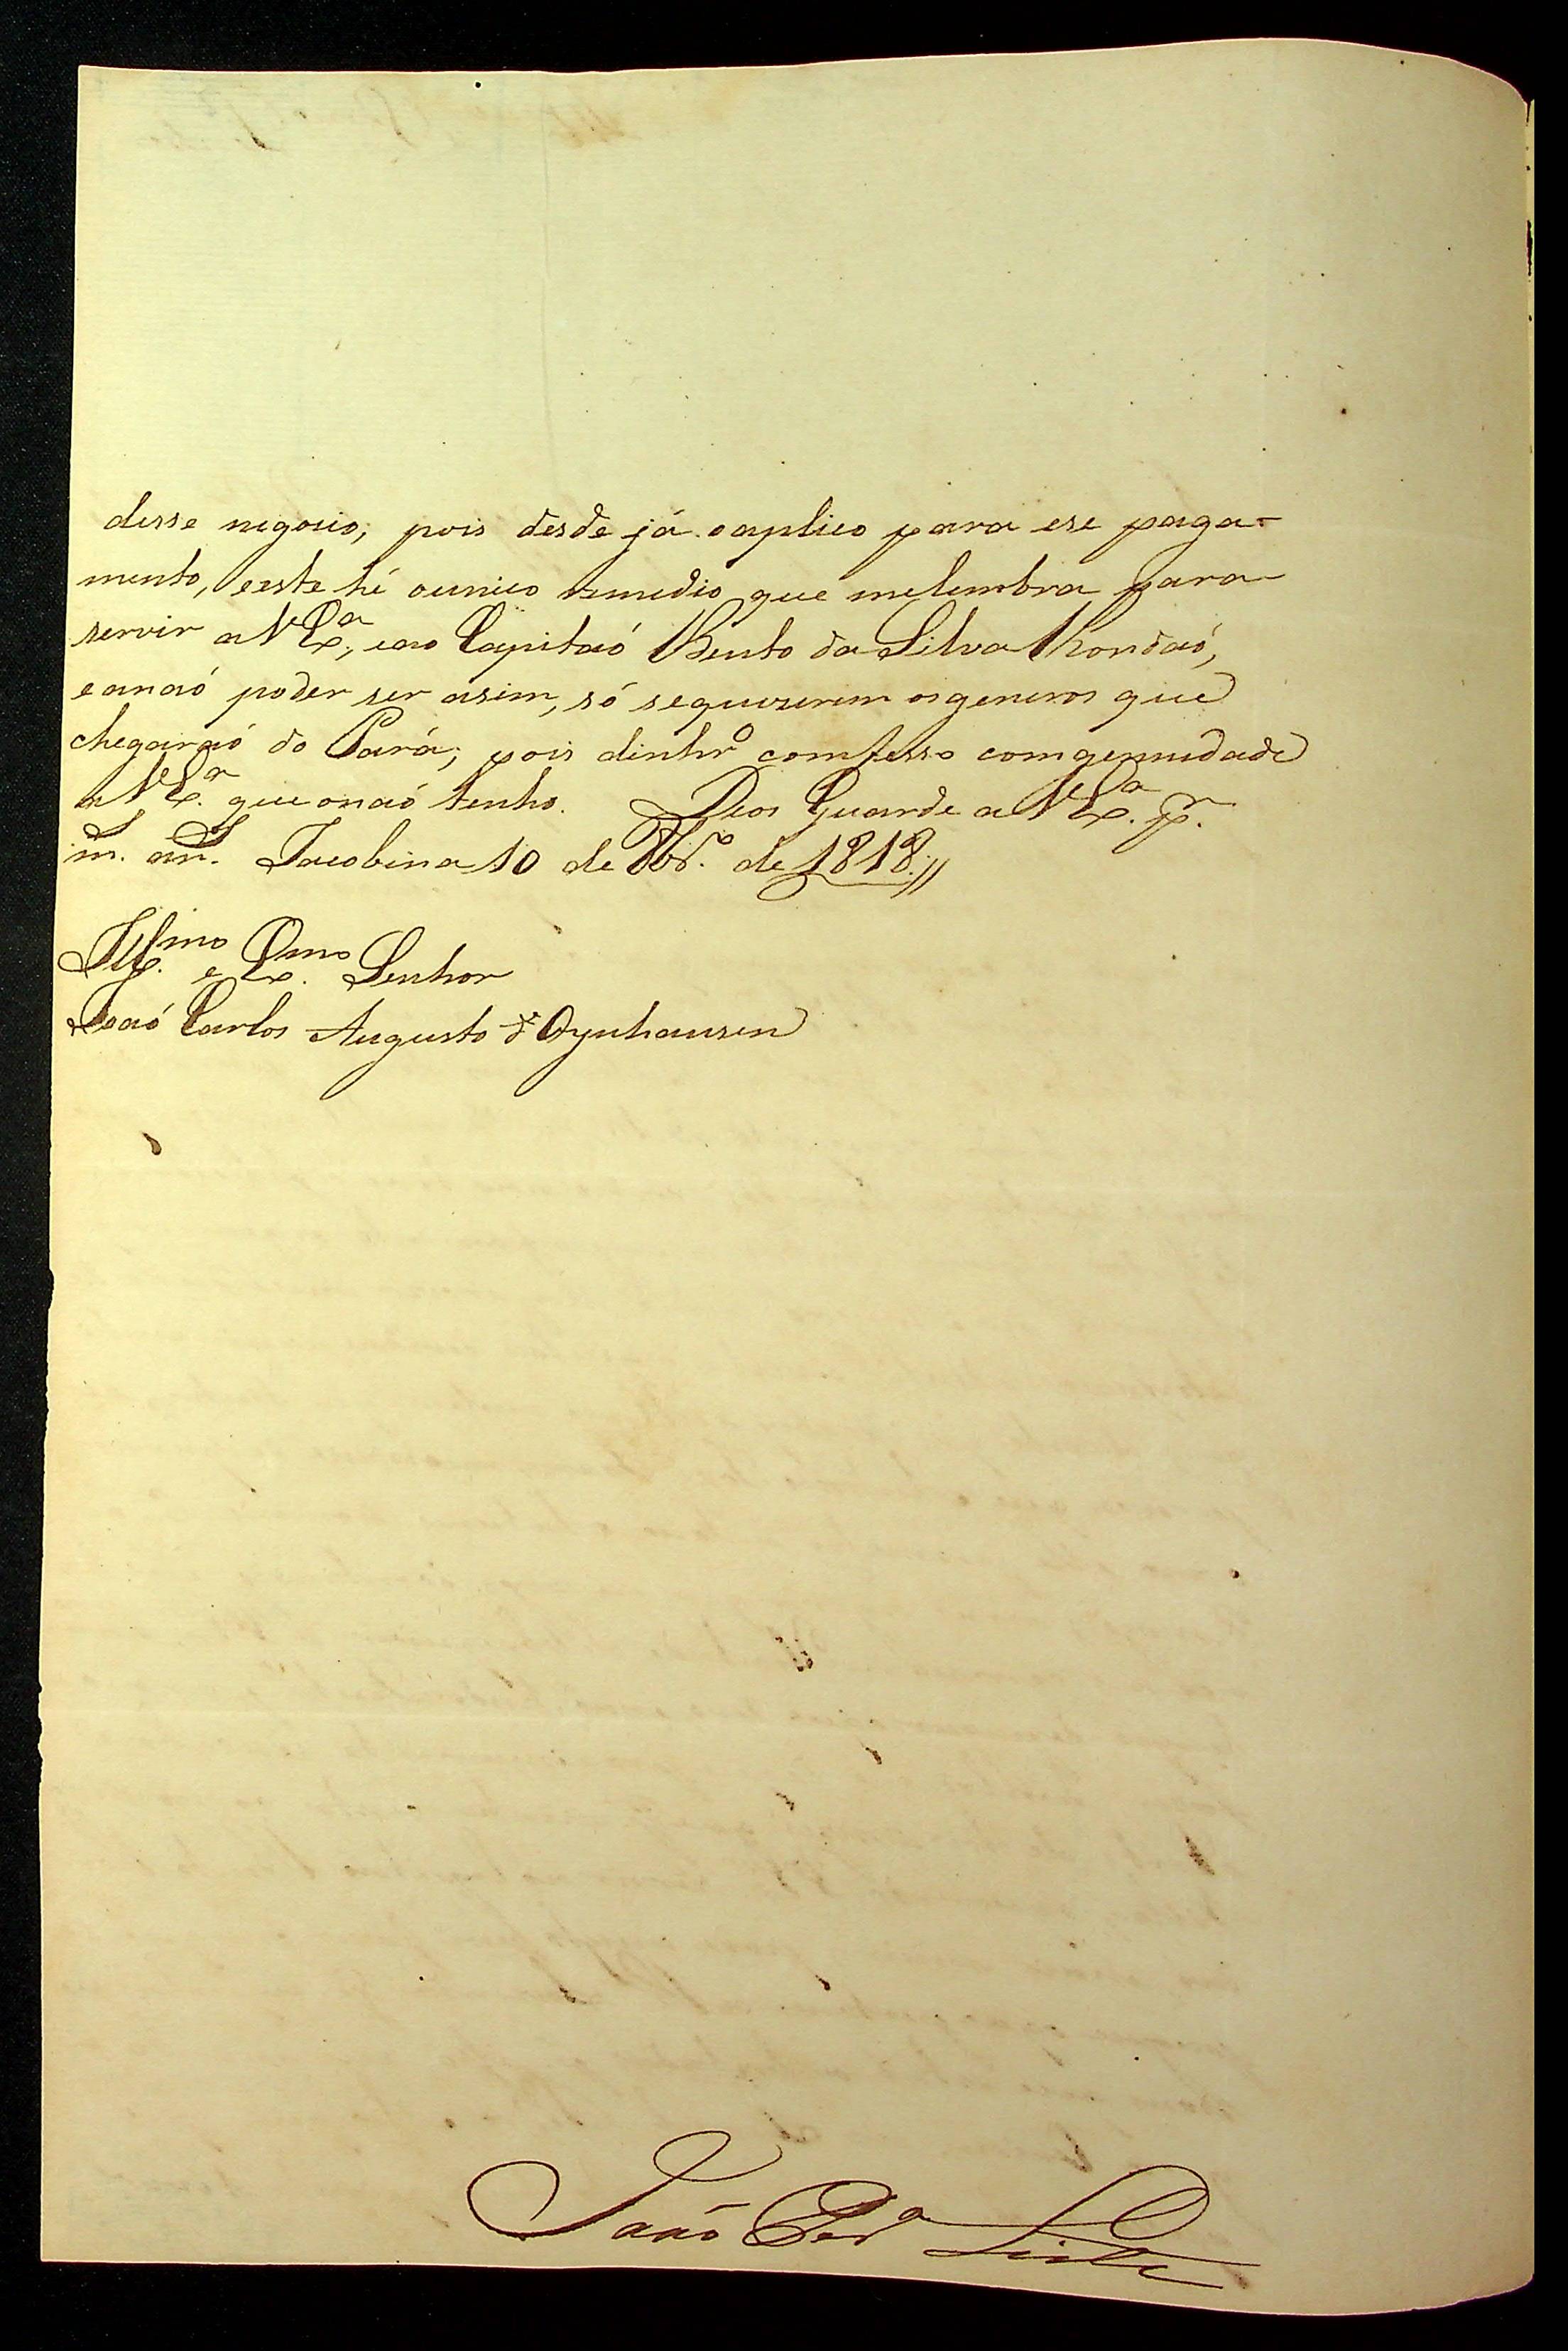 desse negocio; pois desde já oaplico para ese paga-
mento, eeste hé ounico remedio que melembra para
servir a VEx.ª, eao Capitaõ Bento da Silva Rondaõ,
eanaõ poder ser asim, só sequizerem osgeneros que
chegaraõ do Pará; pois dinhrº comfesso comgenuidade
a VEx.ª que onaõ tenho. Deos Guarde a VEx.ª pr.
m. an. Jacobina 10 de de 1818.//
Illmo. e Exmo. Senhor
Joaõ Carlos Augusto d'Oynhausen
Joaõ Perª Leite